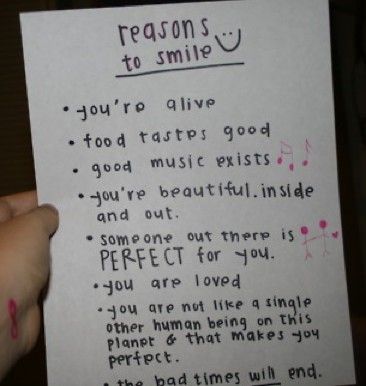 reasons
to smile
• you're alive
• food tastes good
• good music exists
• you're beautiful. inside
and out.
• someone out there is
PERFECT for you.
• you are loved
• you are not like a single
other human being on this
planet & that makes you
perfect.
• the bad times will end.